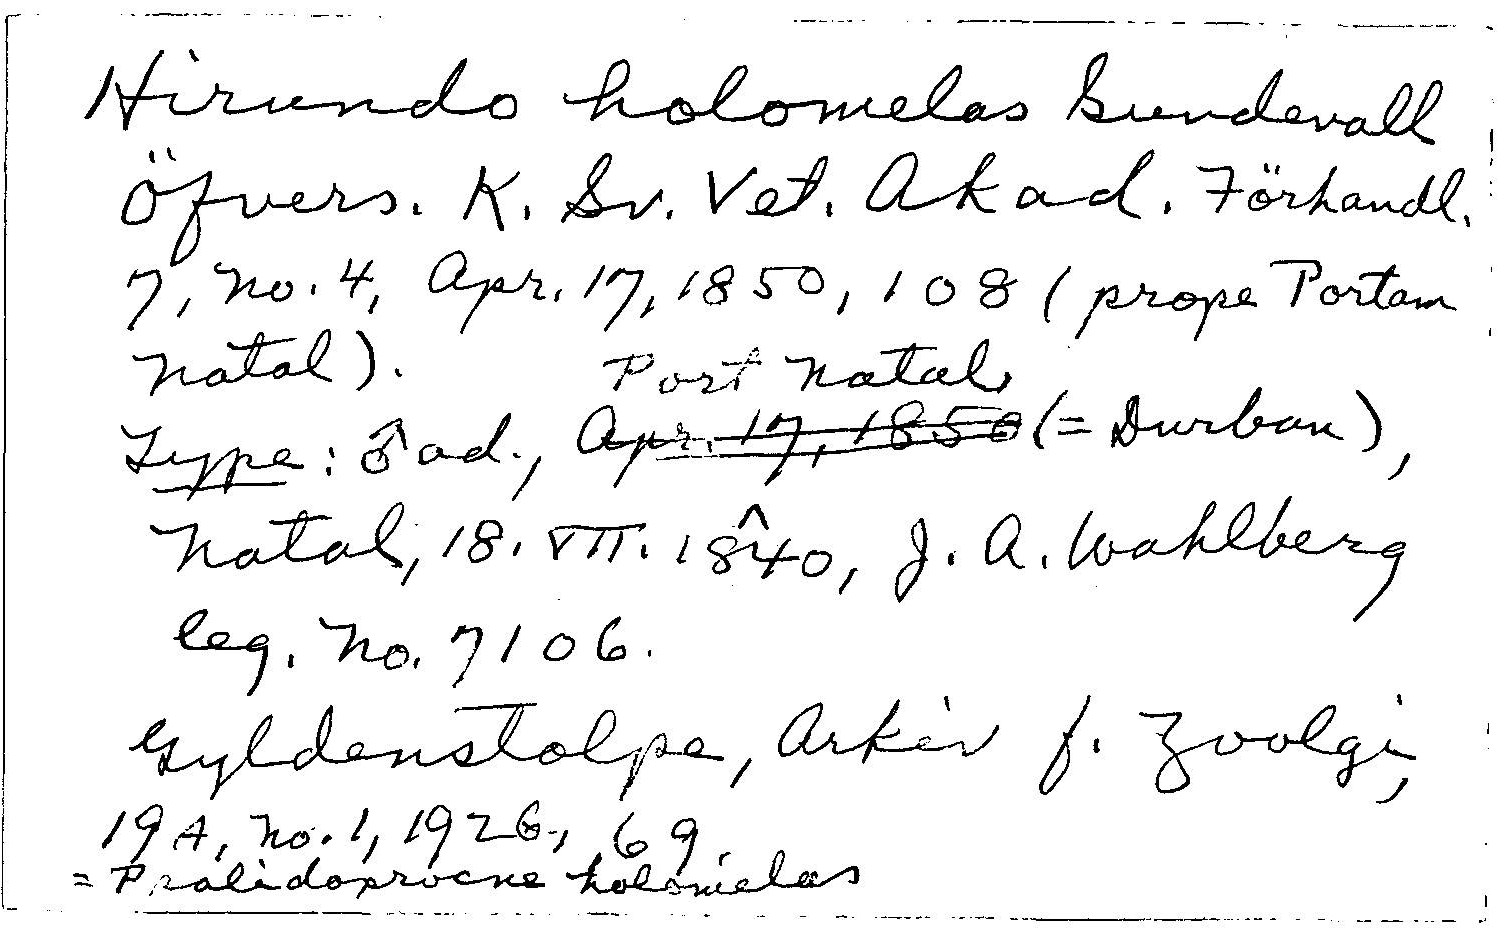 Hirundo holomelas Sundevall
Öfvers. K. Sv. Vet. Akad. Förhandl.
7, No. 4, Apr. 17, 1850, 108 (prope Portam
Natal).
Port Natal
Type: ♂ ad., Apr. 17, 1850 (= Durban),
Natal, 18. VII. 1840, J. A. Wahlberg
leg. No. 7106.
Gyldenstolpe, Arkiv f. Zoolgi,
19A, No. 1, 1926, 69.
= Psalidoprocne holomelas